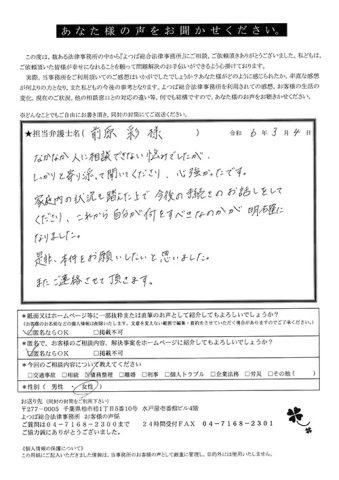 あなた様の声をお聞かせください。
この度は、数ある法律事務所の中から『よつば総合法律事務所』にご相談、ご依頼頂きありがとうございました。私どもは、
ご依頼頂いた皆様が幸せになれることを願って問題解決のお手伝いができるよう心掛けております。
実際、当事務所をご利用頂いてのご感想はいかがでしたでしょうか？あなた様がどのように感じられたか、率直な感想
が何よりの力となり、また私どもの今後の参考となります。よつば総合法律事務所を利用されての感想、お客様の生活の
変化、現在のご状況、他の相談窓口との対応の違い等、何でも結構ですので、あなた様のお声をお聴きかせください。
※どんなことでもご自由にお書き頂き、同封の封筒にてご返送ください。
★担当弁護士名（ 前原 彩 様 ） 令和 6年 3月 4日
なかなか人に相談できない悩みでしたが、
しっかりと寄り添って聞いてくださり、心強かったです。
家庭内の状況も踏えた上で今後の手続きのお話しをして
くださり、これから自分が何をすべきなのかが明確に
なりました。
是非、本件をお願いしたいと思いました。
またご連絡させて頂きます。
＊紙面又はホームページ等に一部抜粋または直筆のお声として紹介してもよろしいでしょうか？
（お客様のお名前などの個人情報は削除いたします。文意を変えない範囲で編集・要約をさせていただく場合がありますのでご了承ください。）
☑匿名ならOK □掲載不可
＊匿名で、お客様のご相談内容、解決事案をホームページに紹介してもよろしいでしょうか？
☑匿名ならOK □掲載不可
＊今回のご相談内容について教えてください
□交通事故 □相続 ☑債務整理 □離婚 □刑事 □個人トラブル □企業法務 □労災 □その他（ ）
＊性別（ 男性 ・ 女性 ）
お送り先（同封の封筒をご利用下さい）
〒277-0005 千葉県柏市柏1丁目5番10号 水戸屋壱番館ビル4階
よつば総合法律事務所 お客様の声係
ご質問は04-7168-2300まで 24時間受付FAX 04-7168-2301
ご協力誠にありがとうございました。
《個人情報の保護について》
この用紙にご記入いただきました情報は、当事務所のお客様の声として厳重に管理し、目的外には使用いたしません。